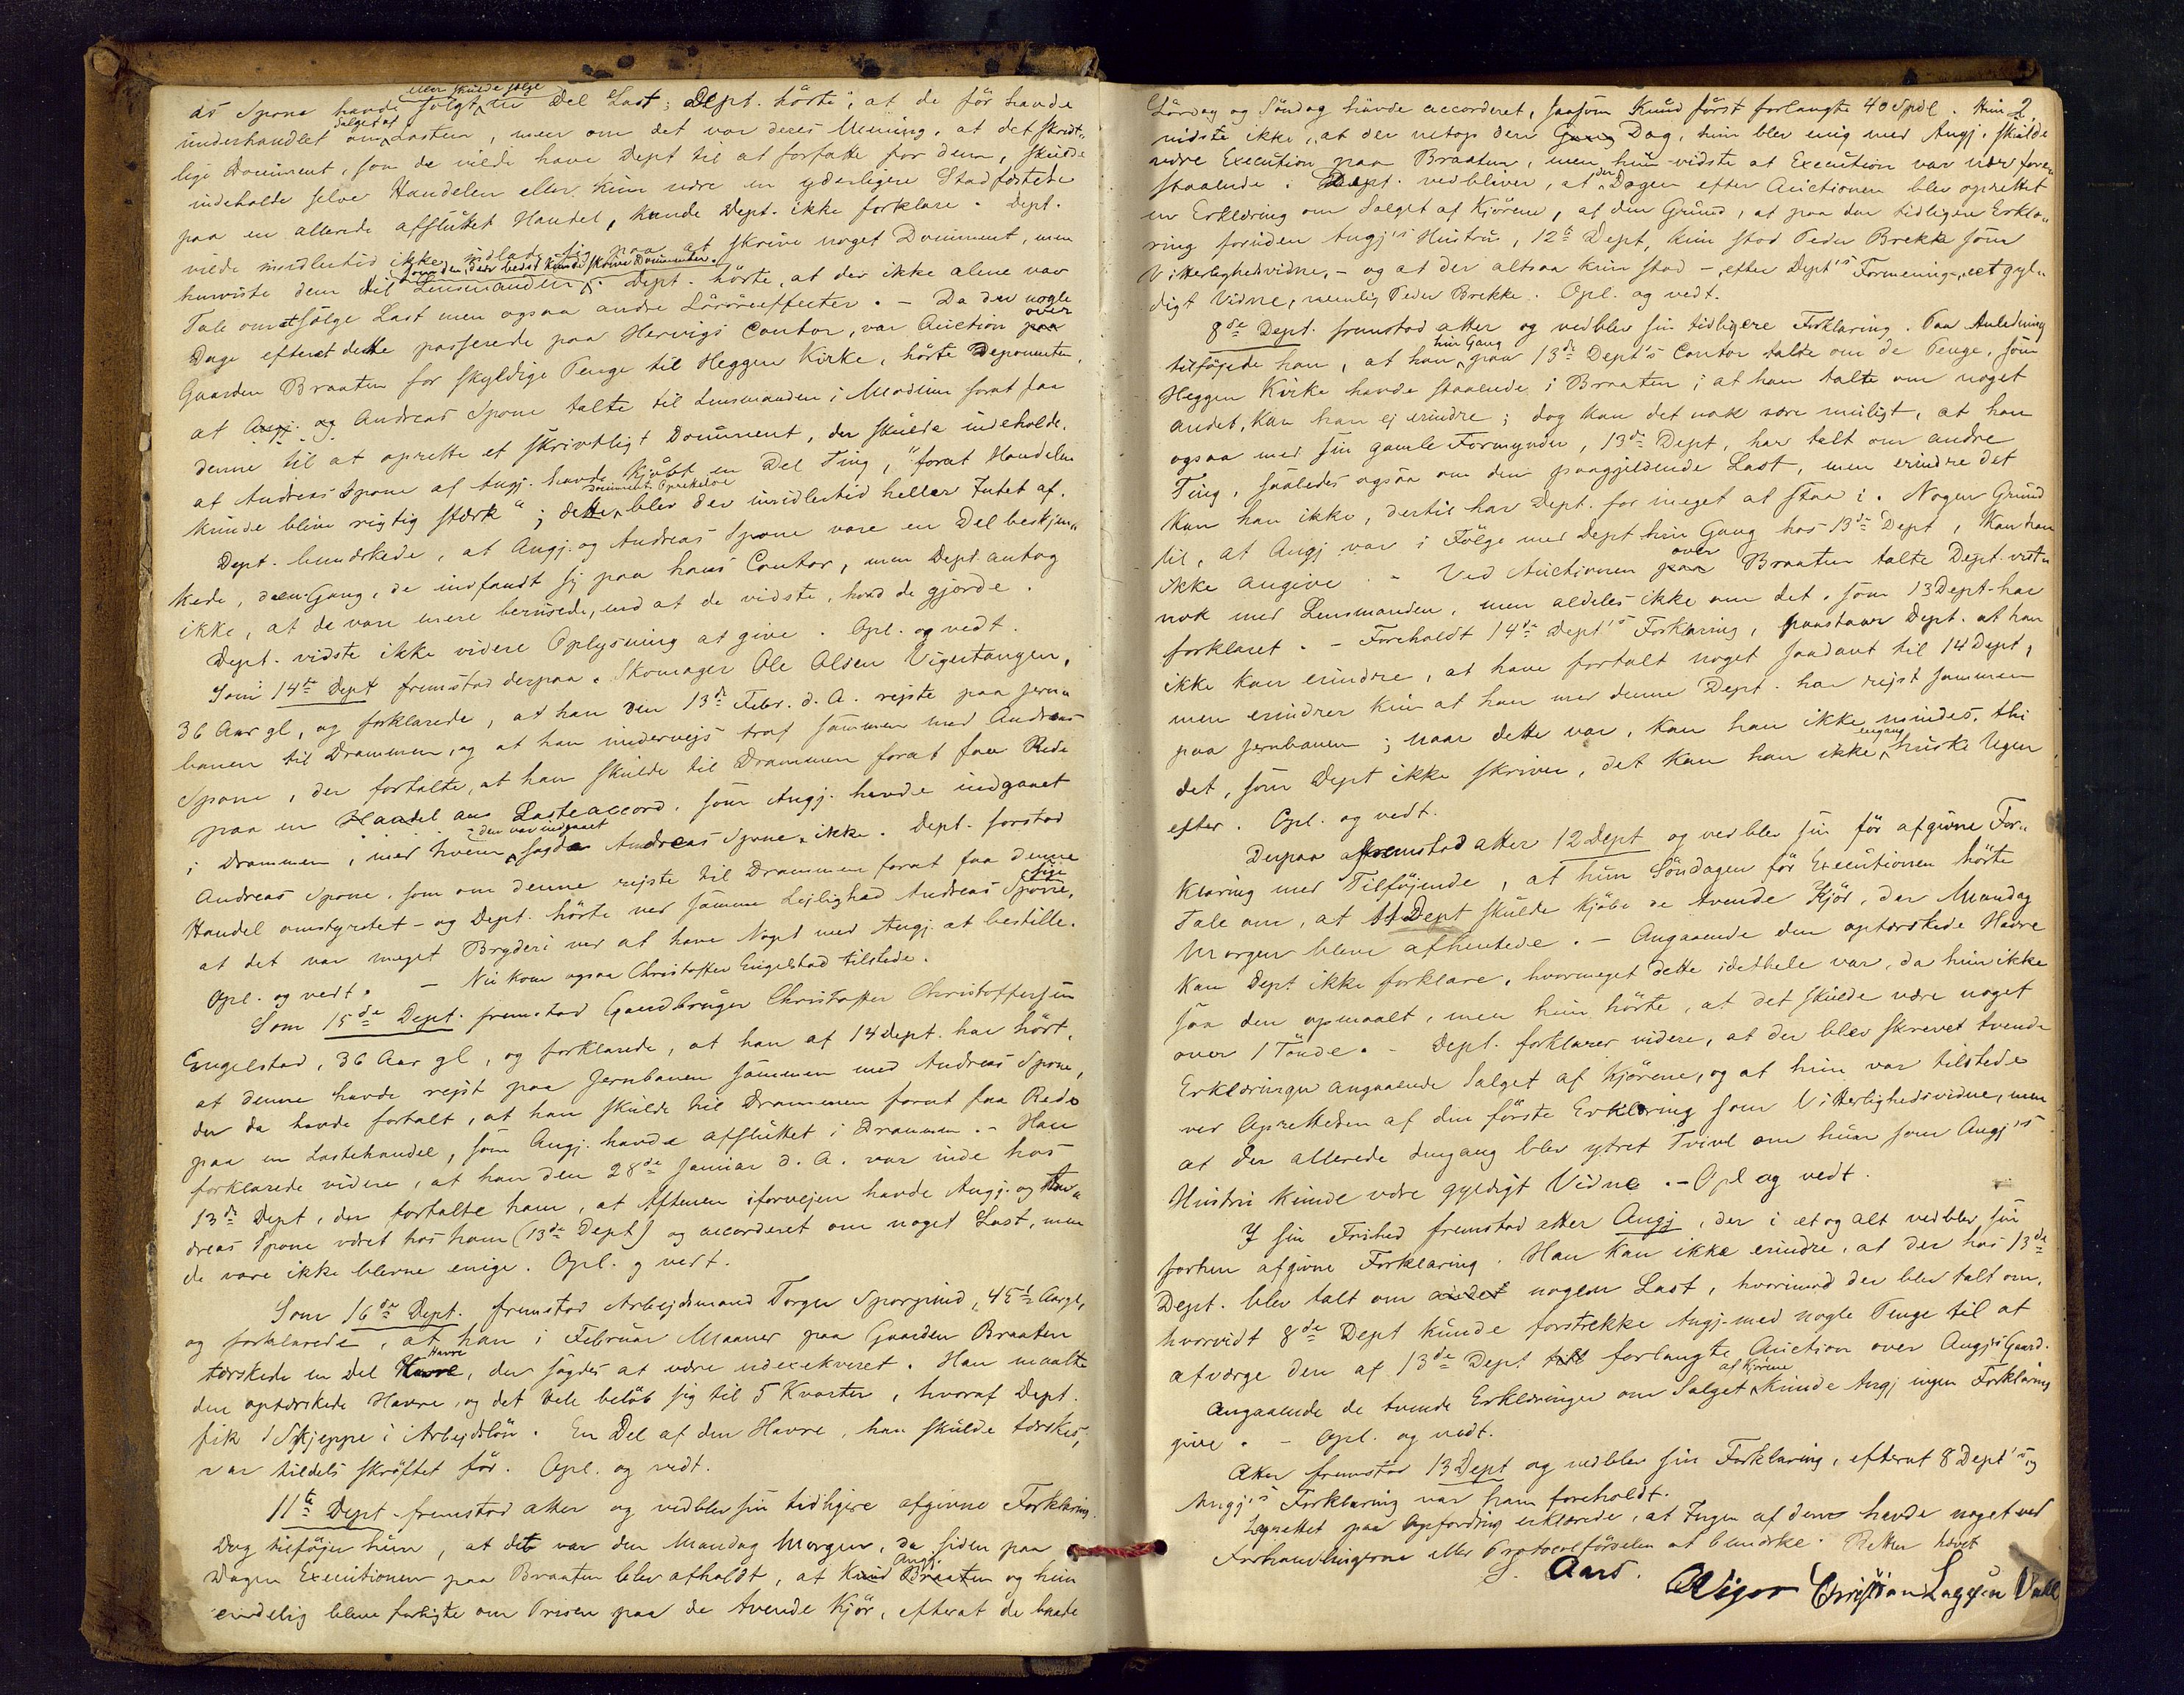 as Spone havde solgt eller skulde sælge en Del Last; Dept. hörte, at de för havde
underhandlet om Salget af Lasten, men om det var deres Mening, at det skrift-
lige Document, som de vilde have Dept til at forfatte for dem, skulde
indeholde selve Handelen eller kun være en yderligere Stadfæstelse
paa en allerede afsluttet Handel, kunde Dept. ikke forklare. Dept.
vilde imidlertid ikke indlade sig paa at skrive noget Document, men
henviste dem til Lensmanden som den, der bedst kunde skrive Documenter. Dept. hörte, at der ikke alene var
Tale om at sælge Last men ogsaa andre Lösöreeffecter. - Da der nogle
Dage efterat dette passerede paa Hervigs Contor, var Auction paa over
Gaarden Braaten for skyldige Penge til Heggen Kirke, hörte Deponenten,
at Angj. og Andreas Spone talte til Lensmanden i Modum forat faa
denne til at oprette et skrivtligt Document, der skulde indeholde,
at Andreas Spone af Angj. havde kjöbt en Del Ting, "forat Handelen
kunde blive rigtig stærk"; dette Documents Oprettelse blev der imidlertid heller Intet af.
Dept. bemærkede, at Angj. og Andreas Spone vare en Del beskjæn-
kede, den Gang, de indfandt sig paa hans Contor, men Dept. antog
ikke, at de vare mere berusede, end at de vidste, hvad de gjorde.
Dept. vidste ikke videre Oplysning at give. Opl. og vedt.
Som 14de Dept fremstod derpaa Skomager Ole Olsen Vigertangen,
36 Aar gl, og forklarede, at han den 13de Febr. d. A. rejste paa Jern-
banen til Drammen, og at han undervejs traf sammen med Andreas
Spone, der fortalte, at han skulde til Drammen forat faa Rede
paa en Handel aus Lasteaccord, som Angj. havde indgaaet
i Drammen, med hvem den var indgaaet sagde Andreas Spone ikke. Dept. forstod
Andreas Spone, som om denne rejste til Drammen forat faa denne
Handel omstyrtet - og Dept. hörte ved samme Lejlighed Andreas Spone sige,
at det var meget Bryderi ved at have Noget med Angj. at bestille.
Opl. og vedt. - Nu kom ogsaa Christoffer Engelstad tilstede.
Som 15de Dept. fremstod Gaardbruger Christoffer Christoffersen
Engelstad, 36 Aar gl, og forklarede, at han af 14 dept. har hört,
at denne havde rejst paa Jernbanen sammen med Andreas Spone,
der da havde fortalt, at han skulde til Drammen forat faa Rede
paa en Lastehandel, som Angj. havde afsluttet i Drammen. - Han
forklarede videre, at han den 28de Januar d. A. var inde hos
13de Dept, der fortalte ham, at Aftenen iforvejen havde Angj. og An-
dreas Spone været hos ham (13de Dept) og accorderet om noget Last, men
de vare ikke blevne enige. Opl. og vedt.
Som 16de Dept. fremstod Arbejdsmand Torger, 45½ Aar gl,
og forklarede, at han i Februar Maaned paa Gaarden Braaten
tærskede en Del Havre Havre, der sagdes at være udexekveret. Han maalte
den optærskede Havre, og det hele belöb sig til 5 Kvarter, hvoraf Dept.
fik 1 Skjeppe i Arbejdslön. En Del af den Havre, han skulde tærske,
var tildels skröftet för. Opl. og vedt.
11te Dept. fremstod atter og vedblev sin tidligere afgivne Forklaring.
Dog tilföjer hun, at det var den Mandag Morgen, da siden paa
Dagen Executionen paa Braaten blev afholdt, at Knud Braaten Angj. og hun
endelig bleve forligte om Prisen paa de tvende Kjör, efterat de baade
2
Lördag og Söndag havde accorderet, saasom Knud först forlangte 40 Spdl. Hun
vidste ikke, at der netop den Gang Dag, hun blev enig med Angj., skulde
være Execution paa Braaten, men hun vidste at Execution var nær fore-
staaende. Dept. vedbliver, at der Dagen efter Auctionen blev oprettet
en Erklæring om Salget af Kjörene, af den Grund, at paa den tidligere Erklæ-
ring foruden Angj's Hustru, 12te Dept, kun stod Peder Brekke som
Vitterlighedsvidne, - og at der altsaa kun stod - efter Dept's Formening - eet gyl-
digt Vidne, nemlig Peder Brekke. Opl. og vedt.
8de Dept. fremstod atter og vedblev sin tidligere Forklaring. Paa Anledning
tilföjede han, at han hin Gang paa 13de Dept's Contor talte om de Penge, som
Heggen Kirke havde staaende i Braaten; at han talte om noget
andet, kan han ej erindre; dog kan det nok være muligt, at han
ogsaa med sin gamle Formynder, 13de Dept, har talt om andre
Ting, saaledes ogsaa om den paagjeldende Last, men erindre det
kan han ikke, dertil har Dept. for meget at staa i. Nogen Grund
til, at Angj var i Fölge med Dept hin Gang hos 13de Dept, kan han
ikke angive. - Ved Auctionen paa over Braaten talte Dept. vist-
nok med Lensmanden, men aldeles ikke om det, som 13 Dept. har
forklaret. - Foreholdt 14de Dept's Forklaring, paastaar Dept. at han
ikke kan erindre, at have fortalt noget saadant til 14 Dept,
men erindrer kun at han med denne Dept. har rejst sammen
paa Jernbanen; naar dette var, kan han ikke mindes, thi
det, som Dept ikke skriver, det kan han ikke engang huske Ugen
efter. Opl. og vedt.
Derpaa fremstod atter 12 Dept og vedblev sin för afgivne For-
klaring med Tilföjende, at hun Söndagen för Executionen hörte
Tale om, at 11 Dept skulde kjöbe de tvende Kjör, der Mandag
Morgen bleve afhentede. - Angaaende den optærskede Havre
kan Dept ikke forklare, hvormeget dette idethele var, da hun ikke
saa den opmaalt, men hun hörte, at det skulde være noget
over 1 Tönde. - Dept. forklarer videre, at der blev skrevet tvende
Erklæringer angaaende Salget af Kjörene, og at hun var tilstede
ved Oprettelsen af den förste Erklæring som Vitterlighedsvidne, men
at der allerede dengang blev ytret Tvivl om hun som Angj's
Hustru kunde være gyldigt Vidne. - Opl og vedt.
I sin Frihed fremstod atter Angj, der i et og alt vedblev sin
forhen afgivne Forklaring. Han kan ikke erindre, at der hos 13de
Dept. blev talt om andet nogen Last, hvorimod der blev talt om,
hvorvidt 8de Dept kunde forstrekke Angj. med nogle Penge til at
afværge den af 13de Dept forlangte Auction over Angj's Gaard.
Angaaende de tvende Erklæringer om Salget af Kjörene kunde Angj ingen Forklaring
give. - Opl. og vedt.
Atter fremstod 13 Dept og vedblev sin Forklaring, efterat 8 Dept's og
Angj's Forklaring var ham foreholdt.
Lagrettet paa Opfordring erklærede, at Ingen af dem havde noget ved
Forhandlingerne eller Protocolförselen at bemærke. Retten hævet
Aars. Christian